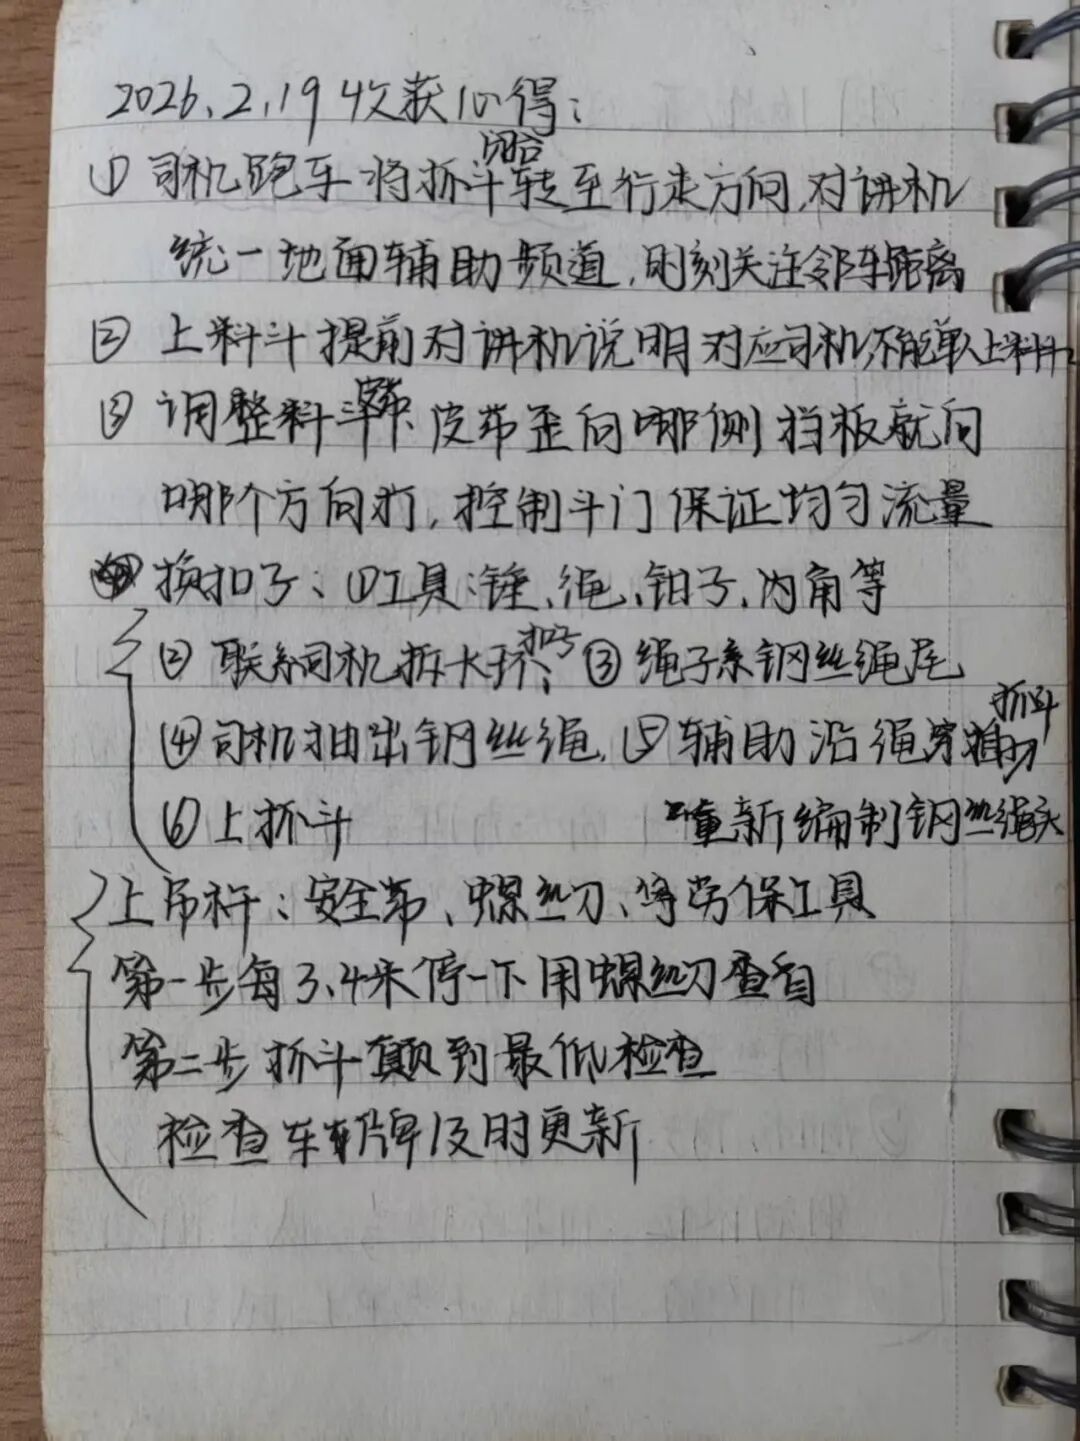 2026.2.19 收获心得：
① 司机跑车将抓斗闭合转至行走方向，对讲机
统一地面辅助频道，时刻关注邻车距离
② 上料斗提前对讲机说明对应司机，不能单人上料斗
③ 调整料斗皮带歪向哪侧挡板就向
哪个方向打，控制斗门保证均匀流量
④ 换扣子：①工具：锤、绳、钳子、内角等
② 联系司机拆大环、扣子 ③ 绳子系钢丝绳尾
④ 司机抽出钢丝绳，⑤ 辅助沿绳穿抓斗
⑥ 上抓斗 重新编制钢丝绳头
上吊杆：安全带、螺丝刀、等劳保工具
第一步每3、4米停一下用螺丝刀查看
第二步抓斗颠到最低检查
检查车牌及时更新